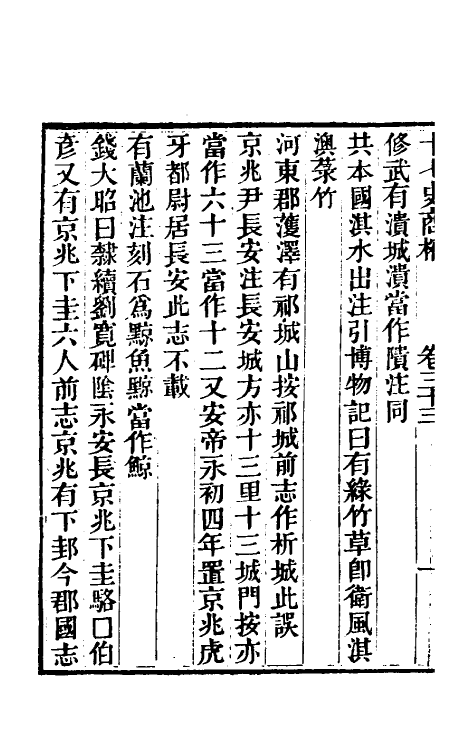 十七史商榷　卷三十三
修武有濆城濆當作隤注同
共本國淇水出注引博物記曰有綠竹草卽衛風淇
澳菉竹
河東郡濩澤有祁城山按祁城前志作析城此誤
京兆尹長安注長安城方亦十三里十三城門按亦
當作六十三當作十二又安帝永初四年置京兆虎
牙都尉居長安此志不載
有蘭池注刻石爲黥魚黥當作鯨
錢大昭曰隸續劉寬碑陰永安長京兆下圭駱□伯
彦又有京兆下圭六人前志京兆有下邽今郡國志